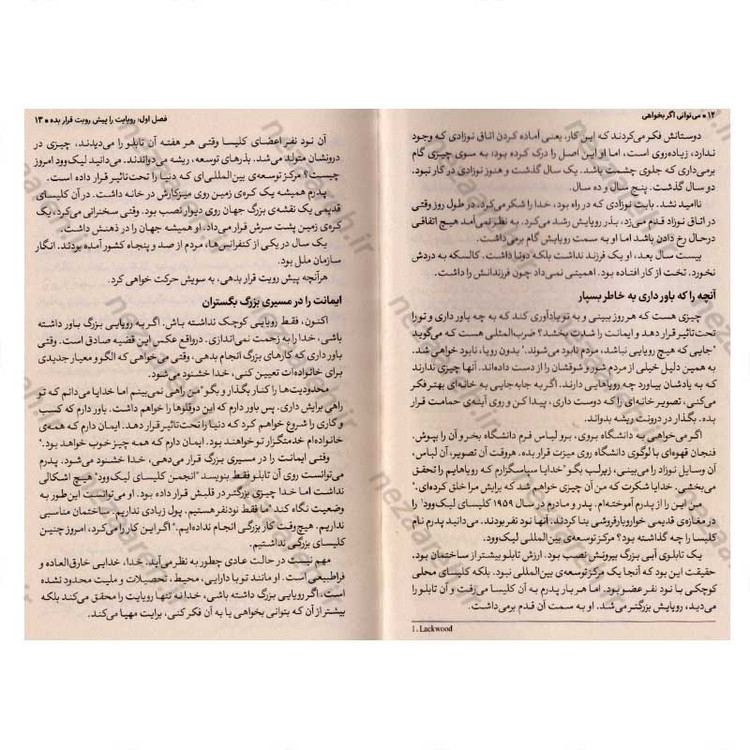 ۱۲ ■ می‌توانی اگر بخواهی
دوستانش فکر می‌کردند که این کار، یعنی آماده کردن اتاق نوزادی که وجود
ندارد، زیاده‌روی است، اما او این اصل را درک کرده بود؛ به سوی چیزی گام
برمی‌داری که جلوی چشمت باشد. یک سال گذشت و هنوز نوزادی در کار نبود.
دو سال گذشت. پنج سال و ده سال.
ناامید نشد. بابت نوزادی که در راه بود، خدا را شکر می‌کرد. در طول روز وقتی
در اتاق نوزاد قدم می‌زد، بذر رویایش رشد می‌کرد. به نظر نمی‌آمد هیچ اتفاقی
درحال رخ دادن باشد اما او به سمت رویایش گام برمی‌داشت.
بیست سال بعد، او یک فرزند نداشت بلکه دوتا داشت. کالسکه به دردش
نخورد. تخت از کار افتاده بود. اهمیتی نمی‌داد چون فرزندانش را داشت.
آنچه را که باور داری به خاطر بسپار
چیزی هست که هر روز ببینی و به تو یادآوری کند که به چه باور داری و تو را
تحت‌تاثیر قرار دهد و ایمانت را شدت بخشد؟ ضرب‌المثلی هست که می‌گوید
"جایی که هیچ رویایی نباشد، مردم نابود می‌شوند." بدون رویا، نابود خواهی شد.
به همین دلیل خیلی از مردم شور و شوقشان را از دست داده‌اند. آنها چیزی ندارند
که به یادشان بیاورد چه رویاهایی دارند. اگر به جابه‌جایی به خانه‌ای بهتر فکر
می‌کنی، تصویر خانه‌ای را که دوست داری، پیدا کن و روی آینه‌ی حمامت قرار
بده. بگذار در درونت ریشه بدواند.
اگر می‌خواهی به دانشگاه بروی، برو لباس فرم دانشگاه بخر و آن را بپوش.
فنجان قهوه‌ای با لوگوی دانشگاه روی میزت قرار بده. هروقت آن تصویر، آن لباس،
آن وسایل نوزاد را می‌بینی، زیرلب بگو "خدایا سپاسگزارم که رویاهایم را تحقق
می‌بخشی. خدایا شکرت که من آن چیزی خواهم شد که برایش مرا خلق کرده‌ای."
من این را از پدرم آموخته‌ام. پدر و مادرم در سال ۱۹۵۹ کلیسای لیک‌وود¹ را
در مغازه‌ی قدیمی خواروبارفروشی بنا کردند. آنها نود نفر بودند. می‌دانید پدرم نام
کلیسا را چه گذاشته بود؟ مرکز توسعه‌ی بین‌المللی لیک‌وود.
یک تابلوی آبی بزرگ بیرونش نصب بود. ارزش تابلو بیشتر از ساختمان بود.
حقیقت این بود که آنجا یک مرکز توسعه‌ی بین‌المللی نبود. بلکه کلیسای محلی
کوچکی با نود نفر عضو بود. اما هر بار پدرم به آن کلیسا می‌رفت و آن تابلو را
می‌دید، رویایش بزرگتر می‌شد. او به سمت آن قدم برمی‌داشت.
1. Lackwood
فصل اول: رویایت را پیش رویت قرار بده ■ ۱۳
آن نود نفر اعضای کلیسا وقتی هر هفته آن تابلو را می‌دیدند، چیزی در
درونشان متولد می‌شد. بذرهای توسعه، ریشه می‌دواندند. می‌دانید لیک‌وود امروز
چیست؟ مرکز توسعه‌ی بین‌المللی‌ای که دنیا را تحت‌تاثیر قرار داده است.
پدرم همیشه یک کره‌ی زمین روی میزکارش در خانه داشت. در آن کلیسای
قدیمی یک نقشه‌ی بزرگ جهان روی دیوار نصب بود. وقتی سخنرانی می‌کرد، یک
کره‌ی زمین پشت سرش قرار می‌داد. او همیشه جهان را در ذهنش داشت.
یک سال در یکی از کنفرانس‌ها، مردم از صد و پنجاه کشور آمده بودند. انگار
سازمان ملل بود.
هرآنچه پیش رویت قرار بدهی، به سویش حرکت خواهی کرد.
ایمانت را در مسیری بزرگ بگستران
اکنون، فقط رویایی کوچک نداشته باش. اگر به رویایی بزرگ باور داشته
باشی، خدا را به زحمت نمی‌اندازی. درواقع عکس این قضیه صادق است. وقتی
باور داری که کارهای بزرگ انجام بدهی، وقتی می‌خواهی که الگو و معیار جدیدی
برای خانواده‌ات تعیین کنی، خدا خشنود می‌شود.
محدودیت‌ها را کنار بگذار و بگو "من راهی نمی‌بینم اما خدایا می‌دانم که تو
راهی برایش داری. پس باور دارم که این دوقلوها را خواهم داشت. باور دارم که کسب
و کاری را شروع خواهم کرد که دنیا را تحت‌تاثیر قرار دهد. ایمان دارم که همه‌ی
خانواده‌ام خدمتگزار تو خواهند بود. ایمان دارم که همه چیز خوب خواهد بود."
وقتی ایمانت را در مسیری بزرگ قرار می‌دهی، خدا خشنود می‌شود. پدرم
می‌توانست روی آن تابلو فقط بنویسد "انجمن کلیسای لیک‌وود" هیچ اشکالی
نداشت اما خدا چیزی بزرگتر در قلبش قرار داده بود. او می‌توانست این‌طور به
وضعیت نگاه کند "ما فقط نود نفر هستیم. پول زیادی نداریم. ساختمان مناسبی
نداریم. هیچ‌وقت کار بزرگی انجام نداده‌ایم." اگر این کار را می‌کرد، امروز چنین
کلیسای بزرگی نداشتیم.
مهم نیست در حالت عادی چطور به نظر می‌آید. خدا، خدایی خارق‌العاده و
فراطبیعی است. او مانند تو با دارایی، محیط، تحصیلات و ملیت محدود نشده
است. اگر رویایی بزرگ داشته باشی، خدا نه تنها رویایت را محقق می‌کند بلکه
بیشتر از آن که بتوانی بخواهی یا به آن فکر کنی، برایت مهیا می‌کند.